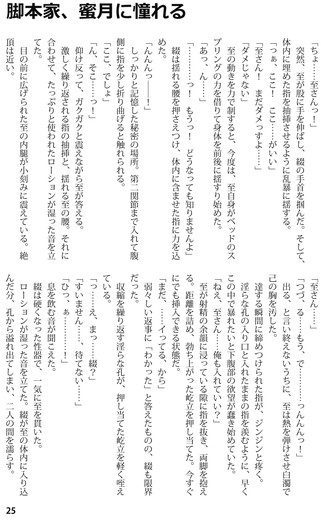 脚本家、蜜月に憧れる
「ちょ……至さんっ！」
突然、至が股に手を伸ばし、綴の手首を掴んだ。そして、
体内に埋めた指を抽挿させるように乱暴に揺する。
「っぁ、ここ！　ここ……がいい」
「至さん！　まだダメっすよ……」
「ダメじゃない」
至の動きを力で制すると、今度は、至自身がベッドのス
プリングの力を借りて身体を前後に揺すり始めた。
「あっ、ん……」
「……っ！　もうっ！　どうなっても知りませんよ」
綴は揺れる腰を押さえつけ、体内に含ませた指に力を込
「んんんっ――！」
しっかりと記憶した秘密の場所。第二関節まで入れて腹
側に指を少し折り曲げると触れられる。
「ここ、でしょ」
「ん、そこ……っ！」
仰け反って、ガクガクと震えながら至が答える。
激しく繰り返される指の抽挿と、揺れる至の腰。それに
合わせて、たっぷりと使われたローションが湿った音を立
てた。
目の前に広げられた至の内腿が小刻みに震えている。絶
頂は近い。
「至さん……」
「つづ、る……もう、で……っんんっ、んんん――――！」
出る、と言い終えないうちに、至は熱を弾けさせ白濁で
己の胸を汚した。
達する瞬間に締めつけられた指が、ジンジンと疼く。
淫らな孔の入り口と入れたままの指を羨むように、早く
この中で暴れたいと下腹部の欲望が蠢き始めていた。
「ねえ、至さん……俺も入れていい？」
至が射精の余韻に浸っている隙に指を抜き、両脚を抱え
る。距離を詰め、勃ち上がった屹立を押し当てた。今すぐ
にも挿入できる状態だ。
「まだ……イってる、から」
弱々しい返事に「わかった」と答えたものの、綴も限界
だった。
収縮を繰り返す淫らな孔が、押し当てた屹立を軽く咥え
ている。
「っ……え、まっ……綴？」
「すいません……、待てない……」
「ひっ、ぁ……！」
息を飲む音が聞こえた。
綴は硬くなった性器で、一気に至を貫いた。
ローションが湿った音を立てた。綴が至の体内に入り込
んだ分、孔から溢れ出てしまい、二人の間を濡らす。
25